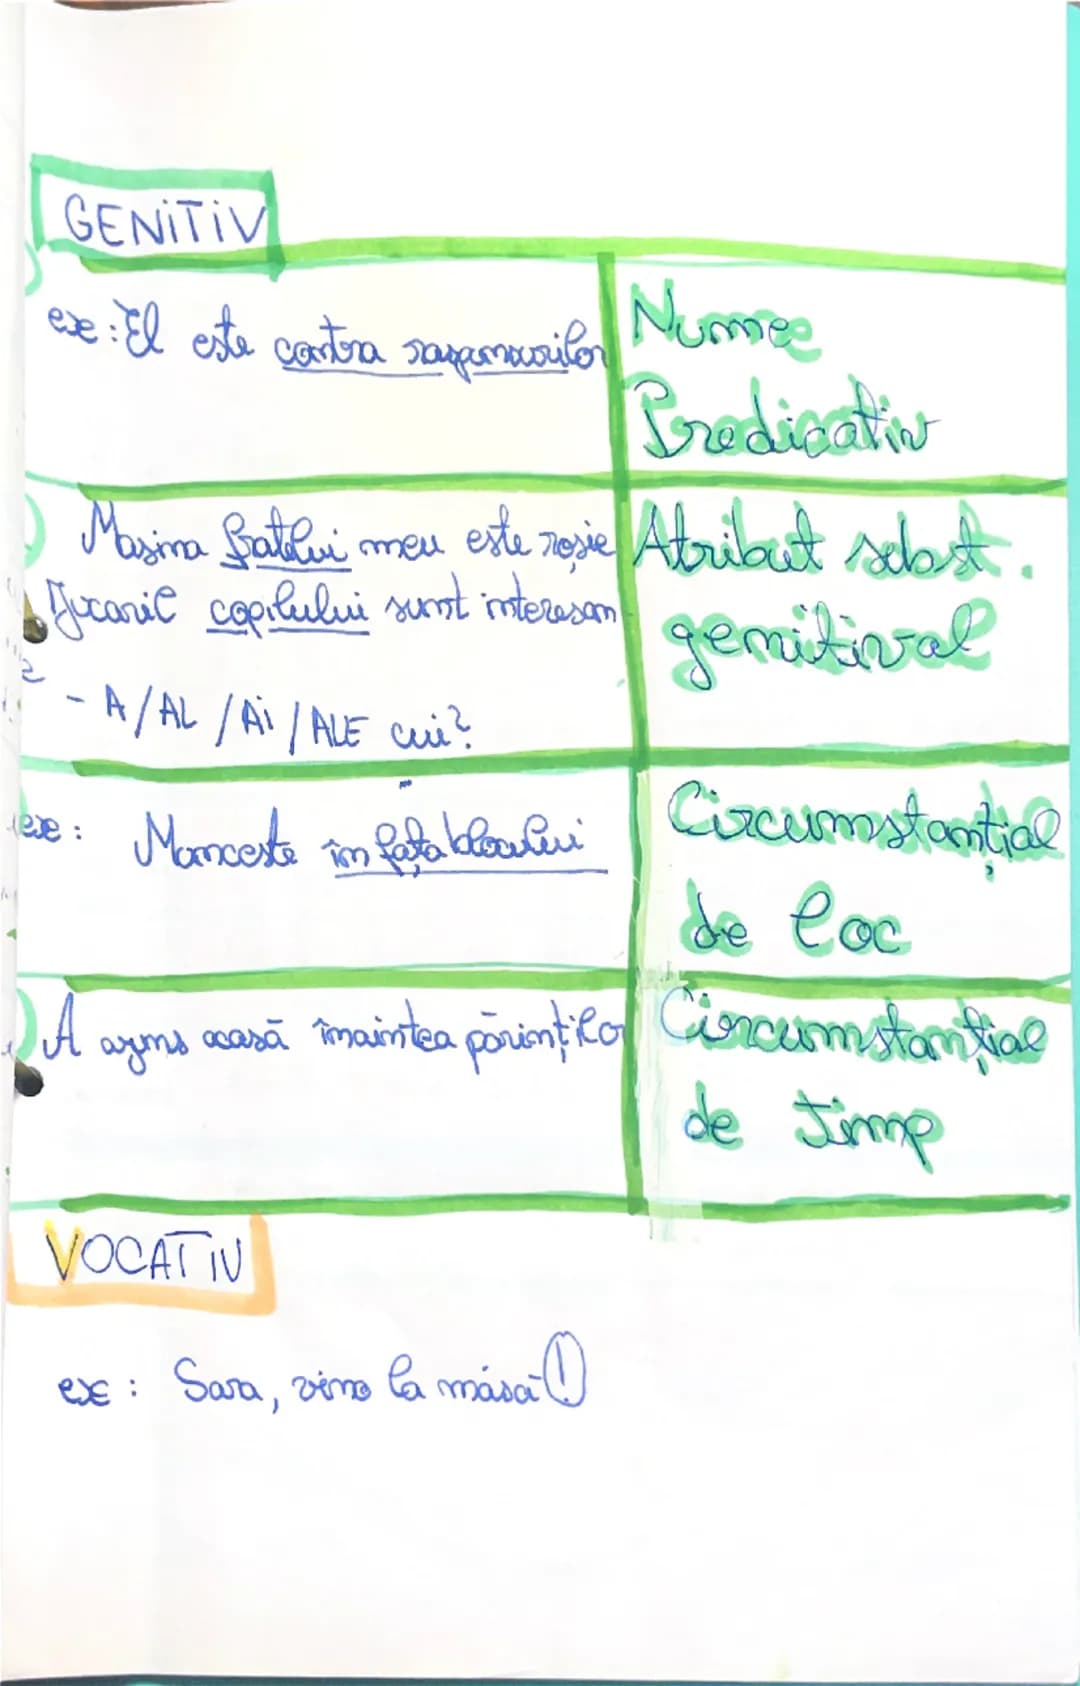 GENITIV
ex: El este contra
Nume
Predicativ
Mașina fratelui meu este roșie
Atribut subst.
genitival
copilului sunt interesan
- A/AL/Ai/ALE cui?
ex: în fața blocului
Circumstanțial
de loc
A ajuns acasă înaintea părinților
Circumstanțial
de timp
VOCATIV
ex: Sara, vino la masă!